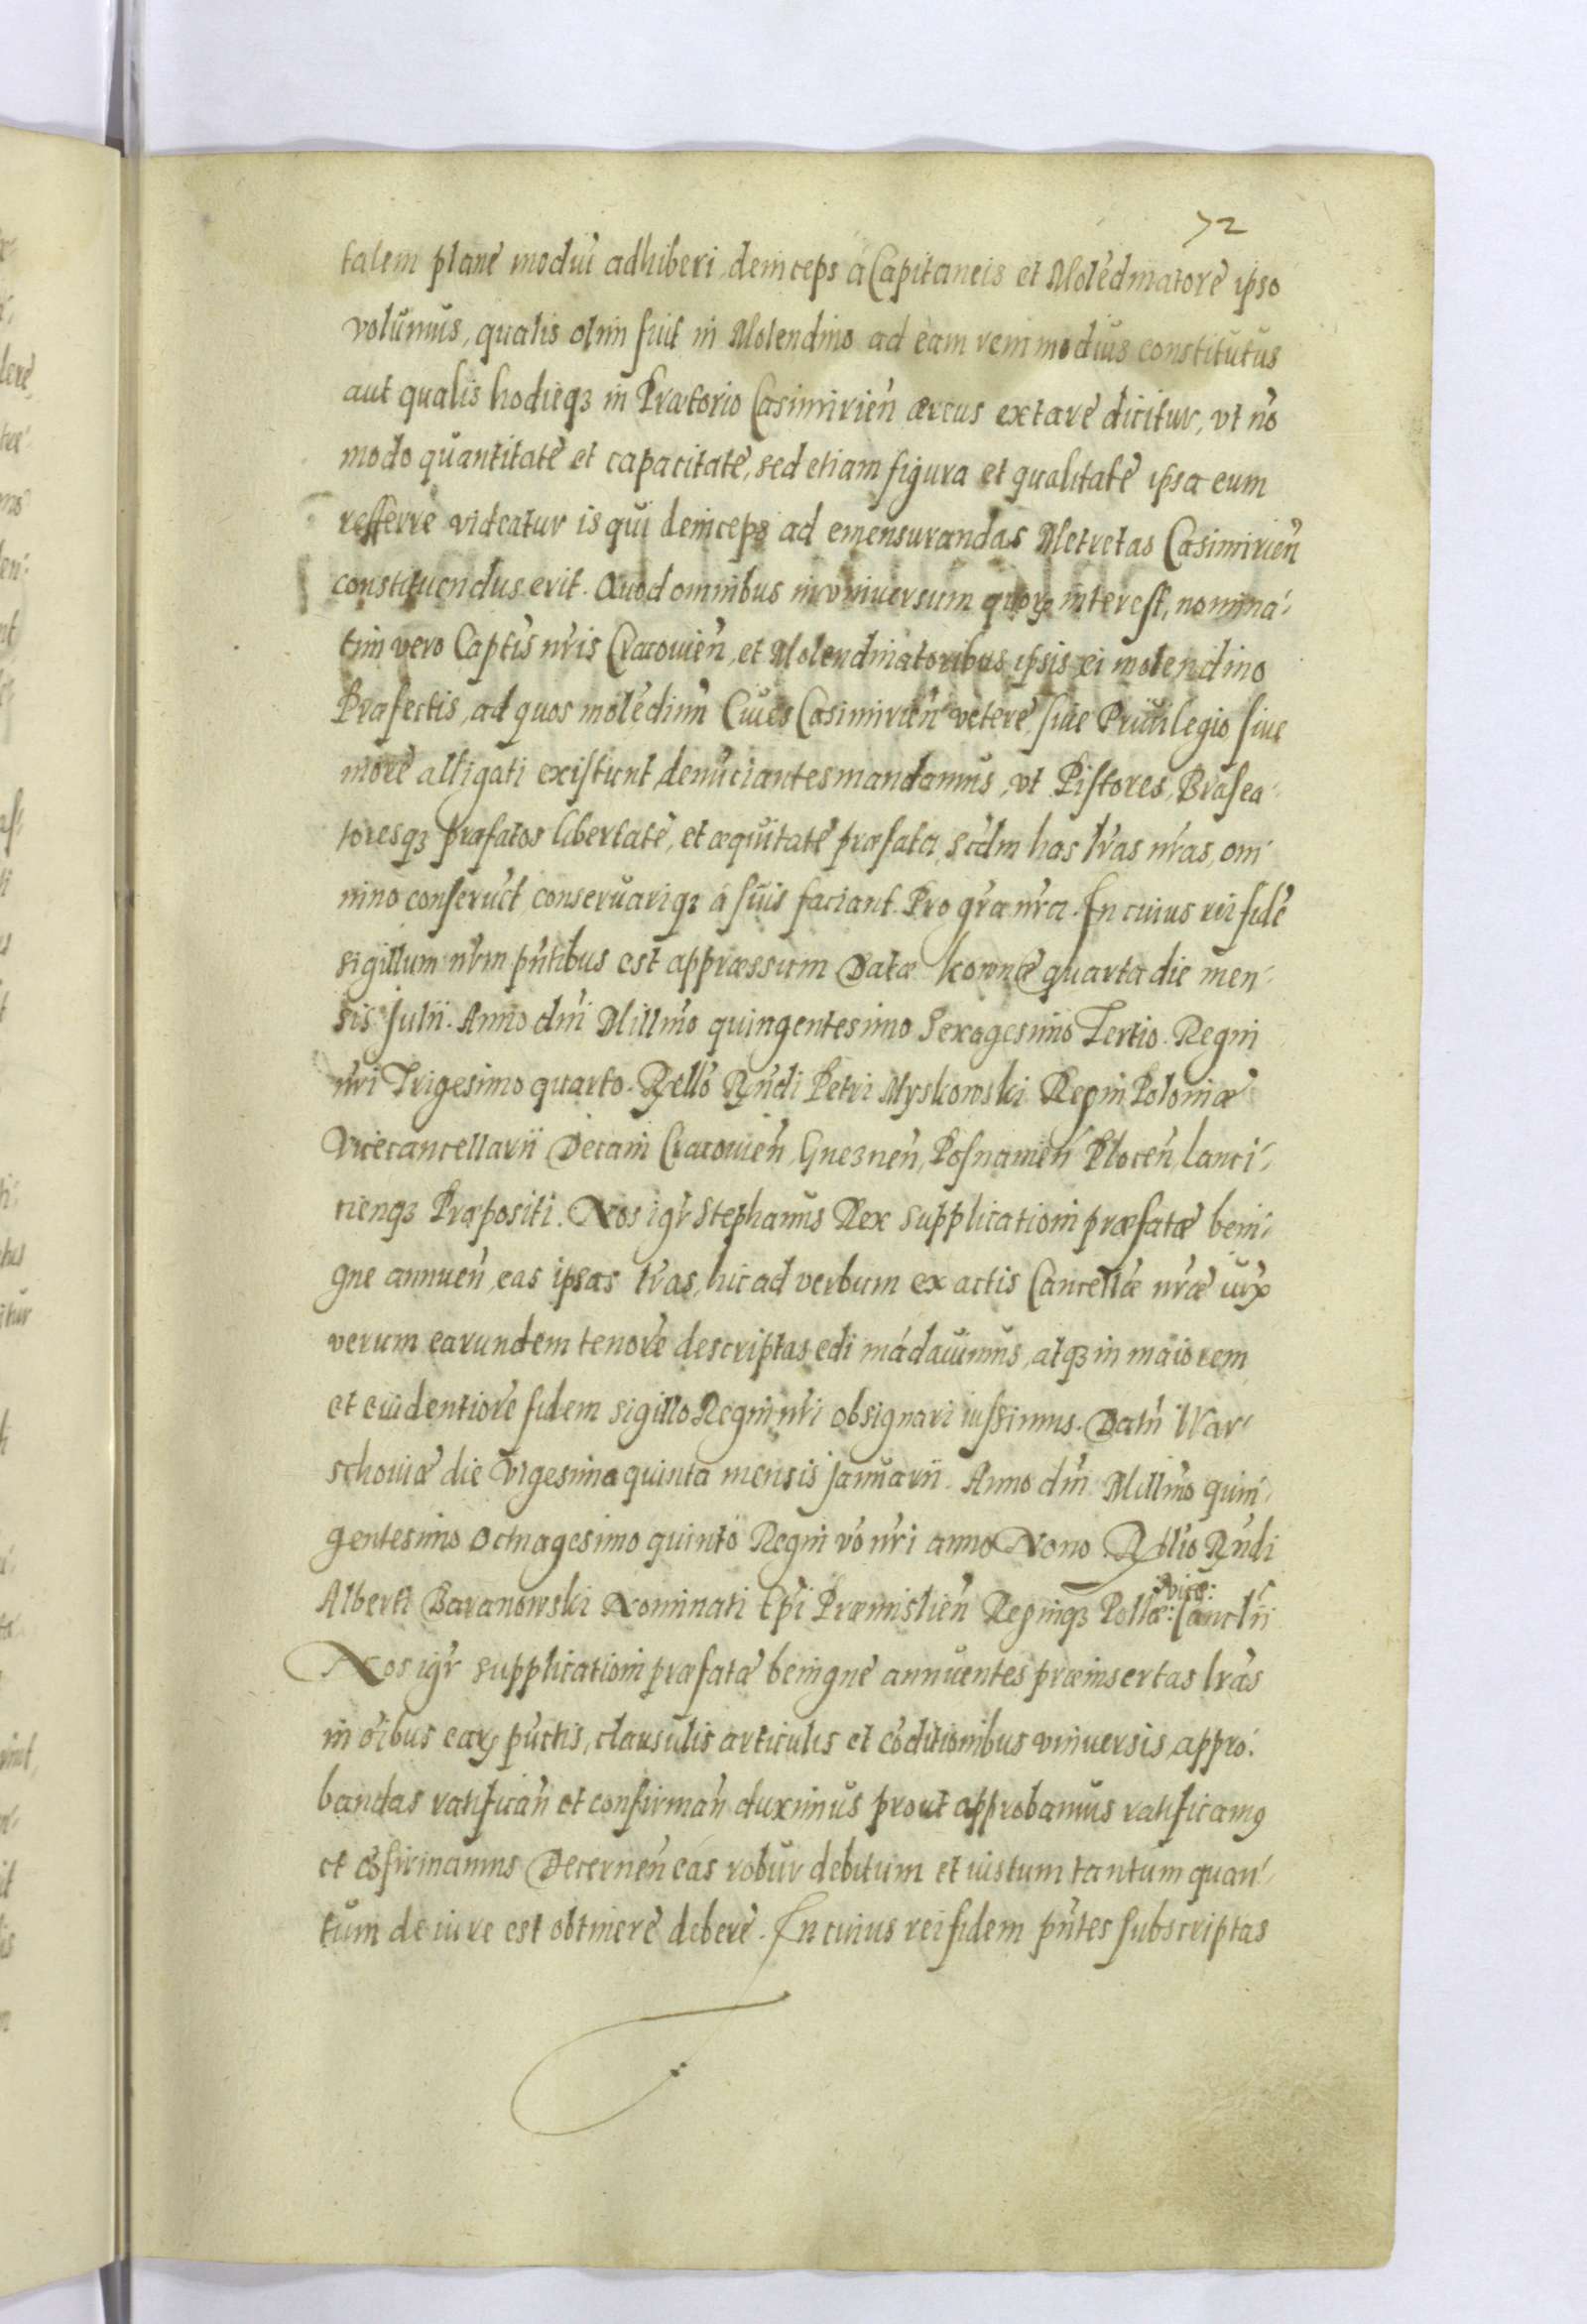 72
talem planè modũ adhiberi deinceps à Capitaneis et Molẽdinatorẽ ipso
volumus, qualis olim fuit in Molendino ad eam rem modius constitutus
aut qualis hodieq3 in Prætorio Casimirieñ æreus extare dicitur, vt nõ
modo quantitatẽ et capacitatẽ, sed etiam figura et qualitatẽ ipsa eum
refferre videatur is qui deinceps ad emensurandas Metretas Casimirieñ
constituendus erit. Quod omnibus in vniversum quorꝝ interest, nomina-
tim vero Capñis nr̃is Cracovieñ, et Molendinatoribus ipsis ei molendino
Præfectis, ad quos molẽdinũ Ciues Casimirieñ vetere, siue Priuilegio, siue
more alligati existunt denũciantes mandamus, vt Pistores, Brasea-
toresq3 præfatos libertatẽ, et æquitatẽ præfata, scđm has lr̃as nr̃as, om-
nino conseruẽt conseruariq3 à suis faciant. Pro gr̃a nr̃a. In cuius rei fidẽ
sigillum nr̃m pñtibus est appræssum Datæ Kownæ quarta die men-
sis Julii. Anno dñi Millmo quingentesimo Sexagesimo Tertio. Regni
nr̃i Trigesimo quarto. Rello Rñdi Petri Myskowski Regni Poloniæ
Vicecancellarii Decani Cracovieñ, Gnezneñ, Posnanieñ Ploceñ, Lanci-
cienq3 Præpositi. Nos igr̃ Stephanus Rex supplicationi præfatæ beni-
gne annueñ, eas ipsas lr̃as, hic ad verbum ex actis Cancellæ nr̃æ iuxꝝ
verum earundem tenorẽ descriptas edi mãdauimus, atq3 in maiorem
et euidentiorẽ fidem sigillo Regni nr̃i obsignari iussimus. Datũ War-
schouiæ die Vigesima quinta mensis Januarii. Anno dñi Millmo quin-
gentesimo Octuagesimo quinto Regni vo nr̃i anno Nono Rello Rñdi
Alberti Baranowski Nominati Epĩ Præmislieñ Regniq3 Pollæ: Vice: Canclrii
Nos igr̃ supplicationi præfatæ benignè annuentes præinsertas lr̃as
in oĩbus earꝝ pũctis, clausulis articulis et cõditionibus vniuersis, appro-
bandas ratificañ et confirmañ duximus prout approbamus ratificamꝰ
et cõfirmamus Decerneñ eas robur debitum et iustum tantum quan-
tum de iure est obtinere debere. In cuius rei fidem pñtes subscriptas